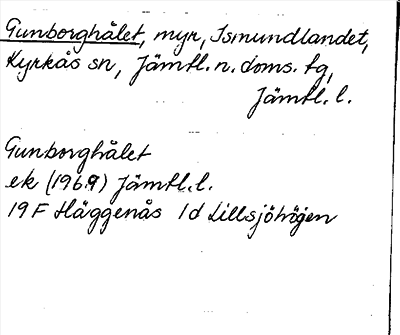 Gunborghålet, myr, Ismundlandet,
Kyrkås sn, Jämtl. n. doms. tg,
Jämtl. l.
Gunborghålet
ek (1969) Jämtl. l.
19 F Häggenås 1 d Lillsjöhögen